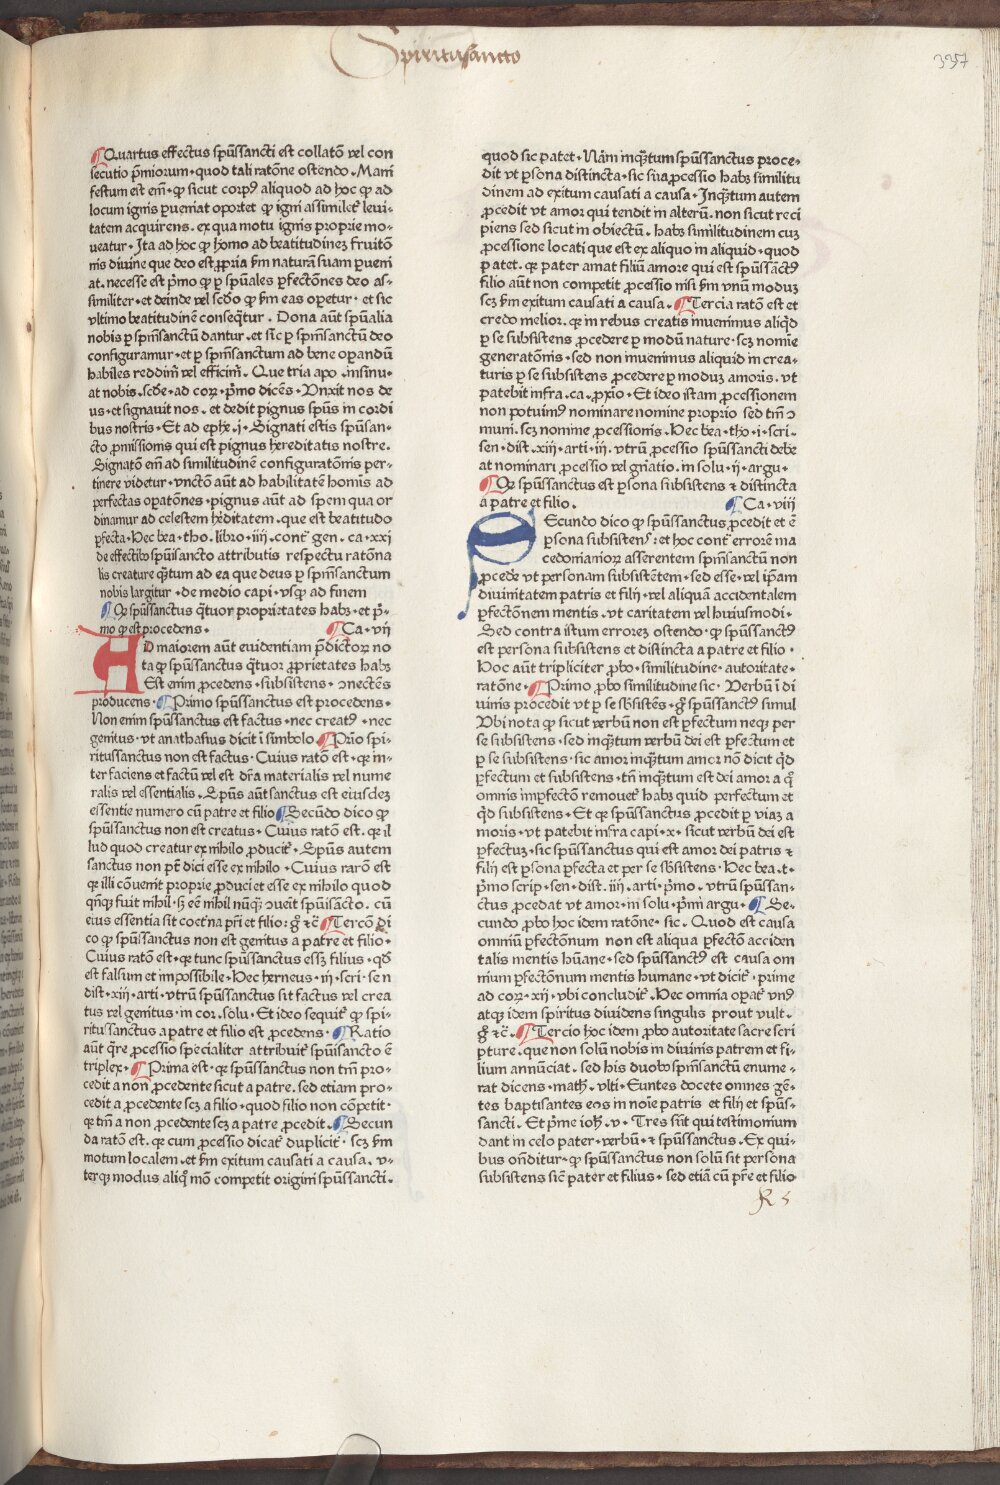 Spiritusancto
337
¶Quartus effectus spūssancti est collatō vel con
secutio p̄miorum · quod tali ratōne ostendo · Mani
festum est em̄ · ꝙ sicut corpꝰ aliquod ad hoc ꝙ ad
locum ignis ꝑueniat oportet ꝙ igni assimiletᷣ leui-
tatem acquirens . ex qua motu ignis proprie mo-
ueatur · Ita ad hoc ꝙ homo ad beatitudinez fruitō
nis diuine que deo est ꝓpria s̄m naturā suam ꝑueni
at . necesse est pͥmo ꝙ ꝑ spūales ꝑfectōnes deo as-
similiter · et deinde vel scd̄o ꝙ s̄m eas oꝑetur · et sic
vltimo beatitudinē conseq̄tur . Dona aūt spūalia
nobis ꝑ spm̄sanctū dantur . et sic ꝑ spm̄sanctū deo
configuramur · et ꝑ spm̄sanctum ad bene oꝑandū
habiles reddimͬ vel efficimͬ . Que tria apo . insinu-
at nobis . scd̄e · ad coꝝ · pͥmo dicēs · Vnxit nos de
us · et signauit nos . et dedit pignus spūs in cordi
bus nostris · Et ad ephe . i · Signati estis spūsan-
cto ꝓmissionis qui est pignus hereditatis nostre .
Signatō em̄ ad similitudinē configuratōnis per-
tinere videtur · vnctō aūt ad habilitatē homīs ad
perfectas oꝑatōnes · pignus aūt ad spem qua or
dinamur ad celestem h̄editatem . que est beatitudo
ꝑfecta · Hec bea · tho . libro · iiij . contᷓ gen . ca · xxi
de effectibꝰ spūsancto attributis respectu ratōna
lis creature q̄tum ad ea que deus ꝑ spm̄sanctum
nobis largitur · de medio capi · vsꝙ ad finem
¶Qꝫ spūssanctus q̄tuor proprietates habꝫ · et pͥ-
mo ꝙ est procedens · ¶Ca · vij
AD maiorem aūt euidentiam p̄dictoꝝ no
ta ꝙ spūssanctus q̄tuor ꝓprietates habꝫ
Est enim ꝓcedens · subsistens · ↄnectēs
producens · ¶Primo spūssanctus est procedens ·
Non enim spūssanctus est factus · nec creatꝰ · nec
genitus · vt anathasius dicit ī simbolo · ¶Prio spi-
ritussanctus non est factus · Cuius ratō est · qꝛ in-
ter faciens et factū vel est dr̄a materialis vel nume
ralis vel essentialis . Spūs aūt sanctus est eiusdeꝫ
essentie numero cū patre et filio ¶Secūdo dico ꝙ
spūssanctus non est creatus · Cuius ratō est . qꝛ il
lud quod creatur ex nihilo ꝓducitᷣ · Spūs autem
sanctus non pt̄ dici esse ex nihilo · Cuius ratō est
qꝛ illi cōuenit proprie ꝓduci et esse ex nihilo quod
qn̄qꝫ fuit nihil · sꝫ eē nihil nūqꝫ ↄueit spūsācto . cū
eius essentia sit coet̄na pr̄i et filio : gͦ ⁊c̄ ¶Tercō di
co ꝙ spūssanctus non est genitus a patre et filio ·
Cuius ratō est · qꝛ tunc spūssanctus essꝫ filius · qd̄
est falsum et impossibile · Hec herueus · iij · scri · sen
dist · xiij · arti · vtrū spūssanctus sit factus vel crea
tus vel genitus · in cor . solu · Et ideo sequitᷣ ꝙ spi-
ritussanctus a patre et filio est ꝓcedens · ¶Ratio
aūt q̄re ꝓcessio specialiter attribuitᷣ spūisancto ē
triplex · ¶Prima est · qꝛ spūssanctus non tm̄ pro-
cedit a non ꝓcedente sicut a patre . sed etiam pro-
cedit a ꝓcedente scꝫ a filio · quod filio non cōpetit ·
qꝛ tm̄ a non ꝓcedente scꝫ a patre ꝓcedit · ¶Secun
da ratō est . qꝛ cum ꝓcessio dicatᷣ duplicitᷣ · scꝫ s̄m
motum localem . et s̄m exitum causati a causa . v-
terqꝫ modus aliqͦ mō competit origini spūssancti .
quod sic patet · Nam inq̄tum spūssanctus proce-
dit vt ꝑsona distincta · sic sua ꝓcessio habꝫ similitu
dinem ad exitum causati a causa · Inq̄tum autem
ꝓcedit vt amor qui tendit in alterū . non sicut reci
piens sed sicut in obiectū . habꝫ similitudinem cuꝫ
ꝓcessione locati que est ex aliquo in aliquid · quod
ꝑ patet . qꝛ pater amat filiū amore qui est spūssāctꝰ
filio aūt non competit ꝓcessio nisi s̄m vnū moduꝫ
scꝫ s̄m exitum causati a causa . ¶Tercia ratō est et
credo melior . qꝛ in rebus creatis inuenimus aliqͥd
ꝑ se subsistens ꝓcedere ꝑ modū nature · scꝫ noīne
generatōnis · sed non inuenimus aliquid in crea-
turis ꝑ se subsistens ꝓcedere ꝑ moduꝫ amoris . vt
patebit infra . ca . ꝓxīo · Et ideo istam ꝓcessionem
non potuimꝰ nominare nomine proprio sed tm̄ ↄ
muni . scꝫ nomine ꝓcessionis . Hec bea · tho · i · scri ·
sen · dist . xiij · arti · iij . vtrū ꝓcessio spūssancti debe
at nominari ꝓcessio vel gn̄atio . in solu · ij · argu ·
¶Qꝫ spūssanctus est ꝑsona subsistens ⁊ distincta
a patre et filio . ¶Ca · viij
SEcundo dico ꝙ spūssanctus ꝓcedit et ē
ꝑsona subsistens : et hoc contᷓ errorē ma
cedonianoꝝ asserentem spm̄sanctū non
ꝓcedē vt personam subsistētem · sed esse · vel ipam
diuinitatem patris et filij · vel aliquā accidentalem
ꝑfectōnem mentis . vt caritatem vel huiusmodi ·
Sed contra istum erroreꝫ ostendo · ꝙ spūssanctꝰ
est persona subsistens et distincta a patre et filio ·
Hoc aūt tripliciter ꝓbo · similitudine · autoritate ·
ratōne · ¶Primo ꝓbo similitudine sic · Verbū ī di
uinis procedit vt ꝑ se sbsistēs · gͦ spūssanctꝰ simul
Vbi nota ꝙ sicut verbū non est ꝑfectum neqꝫ per
se subsistens · sed inq̄tum verbū dei est ꝑfectum et
ꝑ se subsistens · sic amor inq̄tum amor nō dicit qͥd
ꝑfectum et subsistens · tn̄ inq̄tum est dei amor a qͦ
omnis imꝑfectō remouetᷣ habꝫ quid perfectum et
qͥd subsistens · Et qꝛ spūssanctus ꝓcedit ꝑ viaꝫ a
moris · vt patebit infra capi · x · sicut verbū dei est
ꝑfectuꝫ · sic spūssanctus qui est amor dei patris ⁊
filij est ꝑsona ꝑfecta et per se sbsistens · Hec bea . t ·
pͥmo scrip · sen · dist . iij . arti · pͥmo . vtrū spūssan-
ctus ꝓcedat vt amor · in solu · pͥmi argu · ¶Se-
cundo ꝓbo hoc idem ratōne · sic . Quod est causa
omniū ꝑfectōnum non est aliqua ꝑfectō acciden
talis mentis hūane · sed spūssanctꝰ est causa om
nium ꝑfectōnum mentis humane · vt dicitᷣ · prime
ad coꝝ · xij · vbi concluditᷣ . Hec omnia oꝑatᷣ vnꝰ
atqꝫ idem spiritus diuidens singulis prout vult .
gͦ ⁊c̄ . ¶Tercio hoc idem ꝓbo autoritate sacre scri
pture . que non solū nobis in diuinis patrem et fi-
lium annūciat . sed his duobꝰ spm̄sanctū enume-
rat dicens · math̄ . vlti · Euntes docete omnes gē-
tes baptisantes eos in noīe patris et filij et spūs-
sancti . Et pͥme ioh̄ . v · Tres sūt qui testimonium
dant in celo pater · verbū · ⁊ spūssanctus . Ex qui-
bus on̄ditur · ꝙ spūssanctus non solū sit persona
subsistens sic̄ pater et filius · sed etiā cū pr̄e et filio
R 5